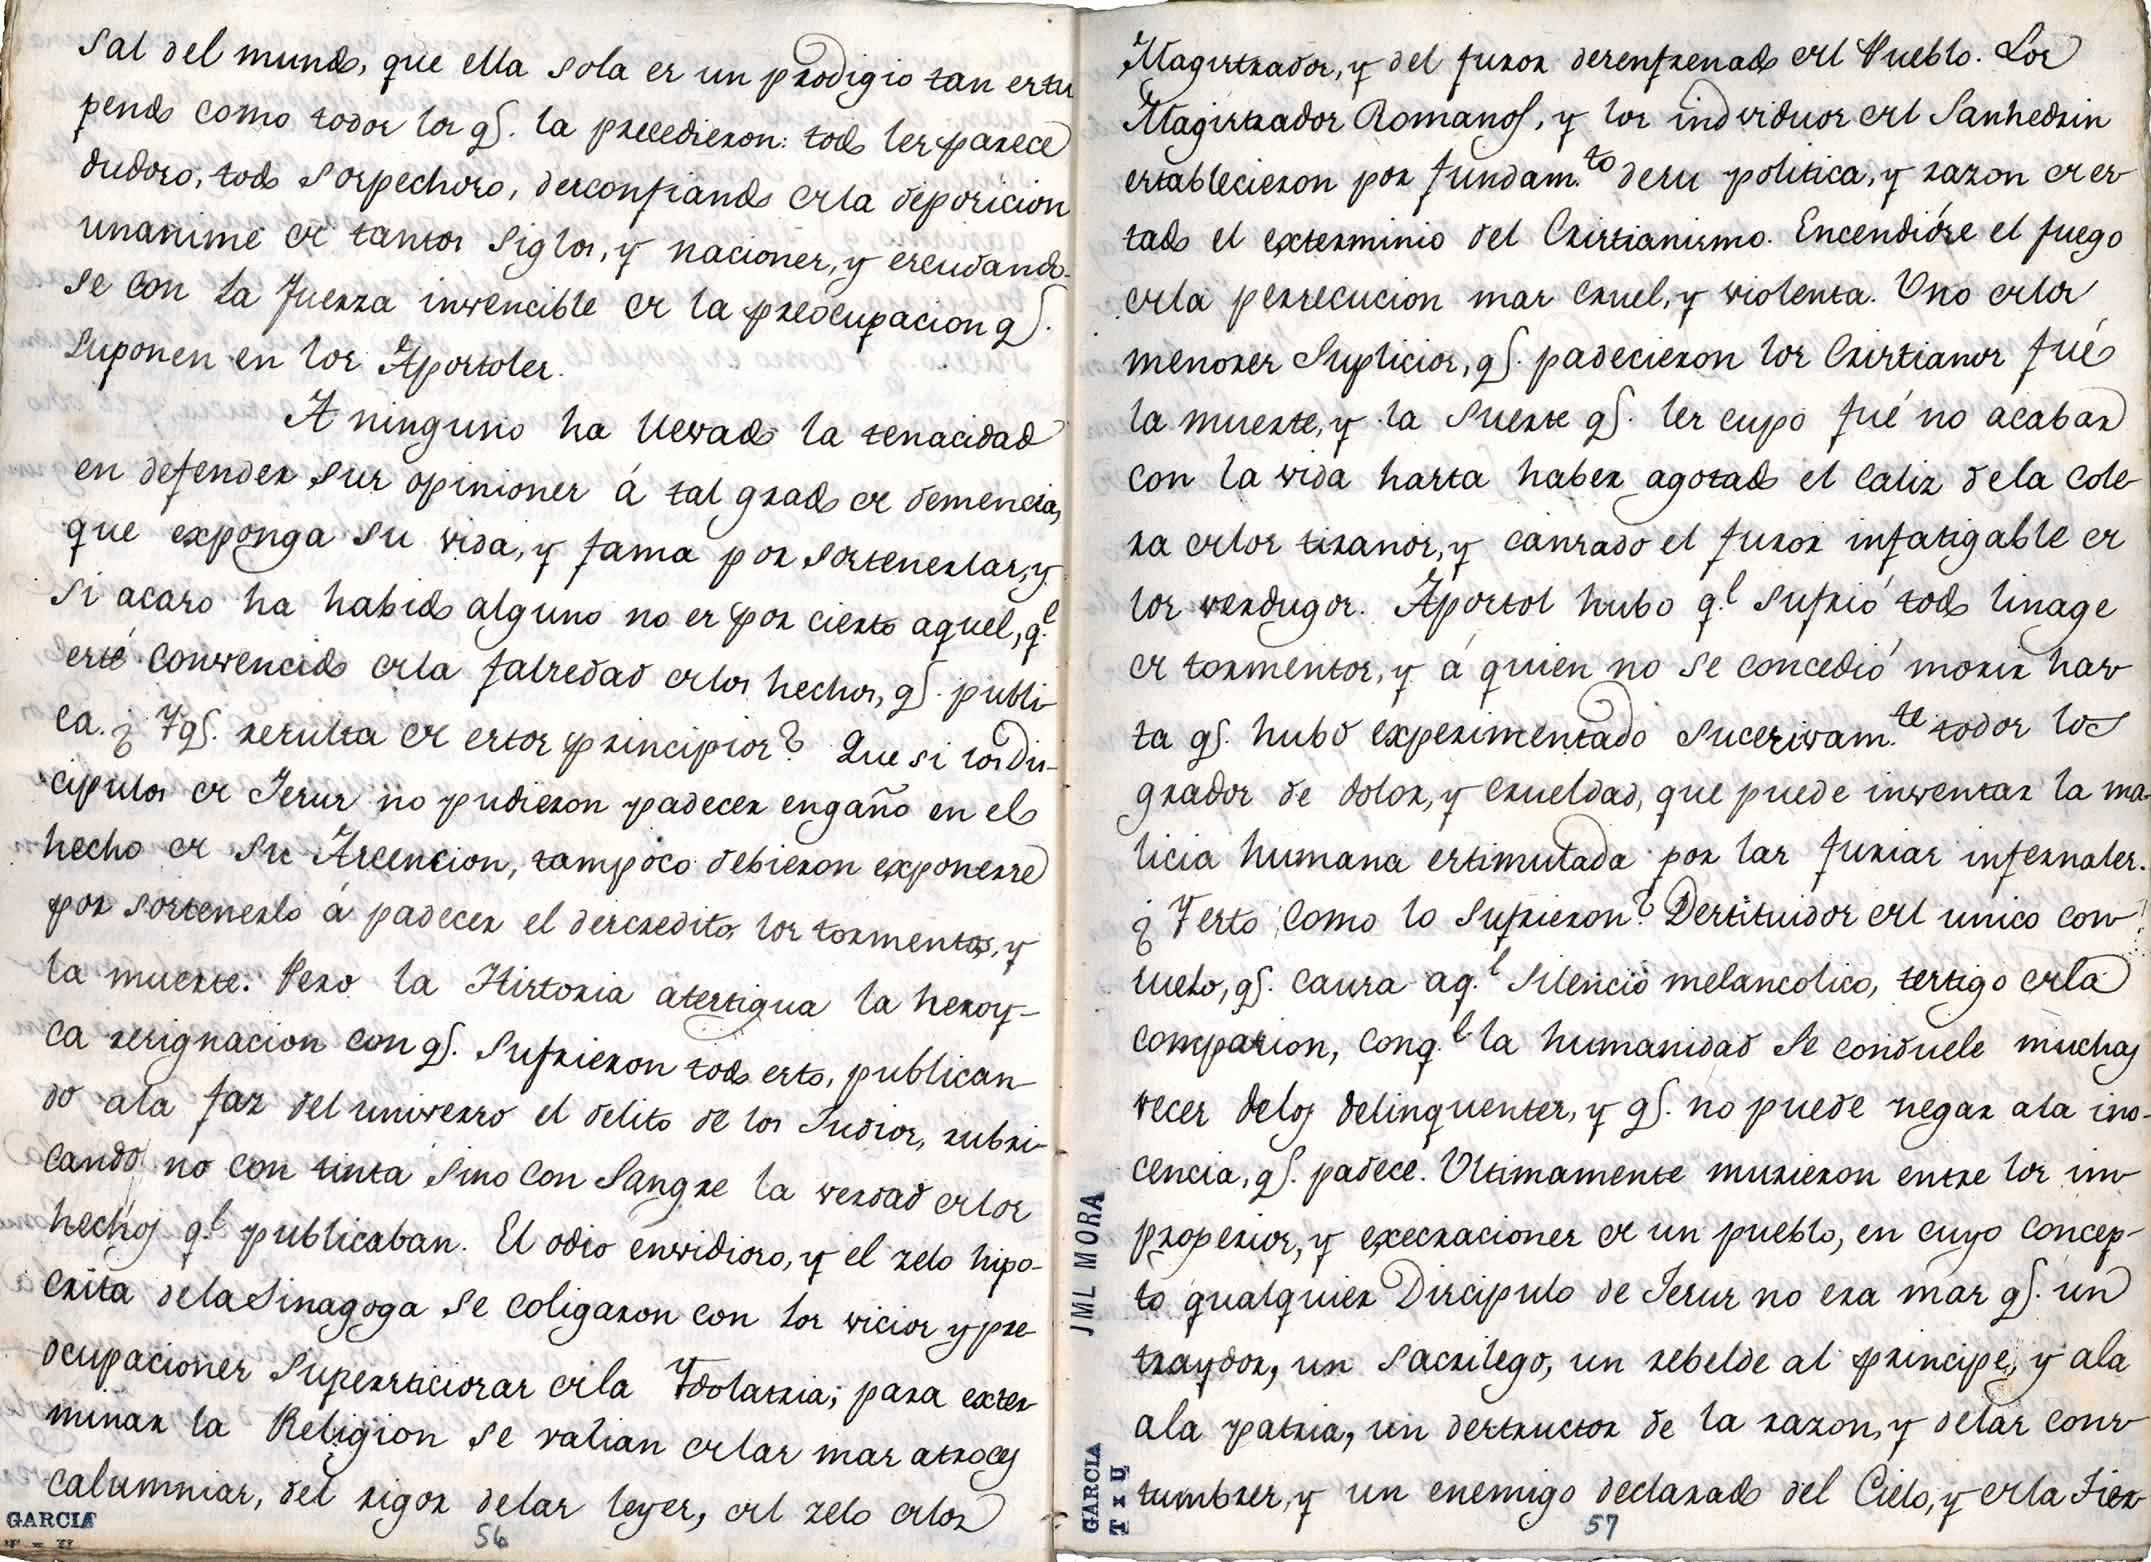 sal del mundo, que ella sola es un prodigio tan estu
pendo como todos los qẽ. la precedieron: todo les parece
dudoso, todo sospechoso, desconfiando de la deposicion
unanime de tantos siglos, y naciones, y escudando-
se con la fuerza invencible de la preocupacion qẽ.
suponen en los Apostoles.
A ninguno ha llevado la tenacidad
en defender sus opiniones á tal grado de demencia,
que exponga su vida, y fama por sostenerlas, y
si acaso ha habido alguno no es por cierto aquel, q.e
esté convencido de la falsedad de los hechos, qẽ. publi-
ca. ¿Y qẽ. resulta de estos principios? Que si los Dis-
cipulos de Jesus no pudieron padecer engaño en el
hecho de su Ascencion, tampoco debieron exponerse
por sostenerlo á padecer el descredito, los tormentos, y
la muerte. Pero la Historia atestigua la heroy-
ca resignacion con qẽ. sufrieron todo esto, publican-
do ala faz del universo el delito de los Judios, rubri-
cando no con tinta sino con Sangre la verdad de los
hechos q.e publicaban. El odio envidioso, y el zelo hipo-
crita dela Sinagoga se coligaron con los vicios y pre-
ocupaciones supersticiosas de la Ydolatria; para exter-
minar la Religion se valian de las mas atroces
calumnias, del rigor delas leyes, del zelo de los
GARCIA
56
Magistrados, y del furor desenfrenado del Pueblo. Los
Magistrados Romanos, y los individuos del Sanhedrin
establecieron por fundam.to desu politica, y razon de es-
tado el exterminio del Cristianismo. Encendióse el fuego
de la persecucion mas cruel, y violenta. Uno de los
menores suplicios, qẽ. padecieron los Cristianos fué
la muerte, y la suerte qẽ. les cupo fué no acabar
con la vida hasta haber agotado el caliz dela cole-
ra de los tiranos, y cansado el furor infatigable de
los verdugos. Apostol hubo q.e sufrió todo linage
de tormentos, y á quien no se concedió morir has-
ta qẽ. hubo experimentado sucesivam.te todos los
grados de dolor, y crueldad, que puede inventar la ma-
licia humana estimulada por las furias infernales.
¿Y esto como lo sufrieron? Destituidos del unico con-
suelo, qẽ. causa aq.l silencio melancolico, testigo de la
compasion, conq.e la humanidad se conduele muchas
veces delos delinquentes, y qẽ. no puede negar ala ino-
cencia, qẽ. padece. Ultimamente murieron entre los im-
properios, y execraciones de un pueblo, en cuyo concep-
to qualquier Discipulo de Jesus no era mas qẽ. un
traydor, un sacrilego, un rebelde al principe, y ala
ala patria, un destructor de la razon, y delas cos-
tumbres, y un enemigo declarado del Cielo, y de la Tier-
JML MORA
GARCIA
57